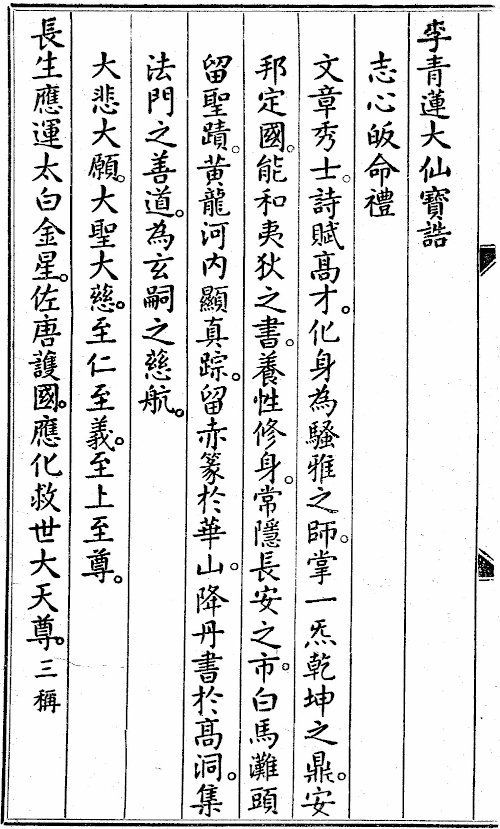 李青蓮大仙寶誥
志心皈命禮
文章秀士。詩賦高才。化身為騷雅之師。掌一炁乾坤之鼎。安
邦定國。能和夷狄之書。養性修身。常隱長安之市。白馬灘頭
留聖蹟。黃龍河內顯真踪。留赤篆於華山。降丹書於高洞。集
法門之善道。為玄嗣之慈航。
大悲大願。大聖大慈。至仁至義。至上至尊。
長生應運太白金星。佐唐護國。應化救世大天尊。三稱